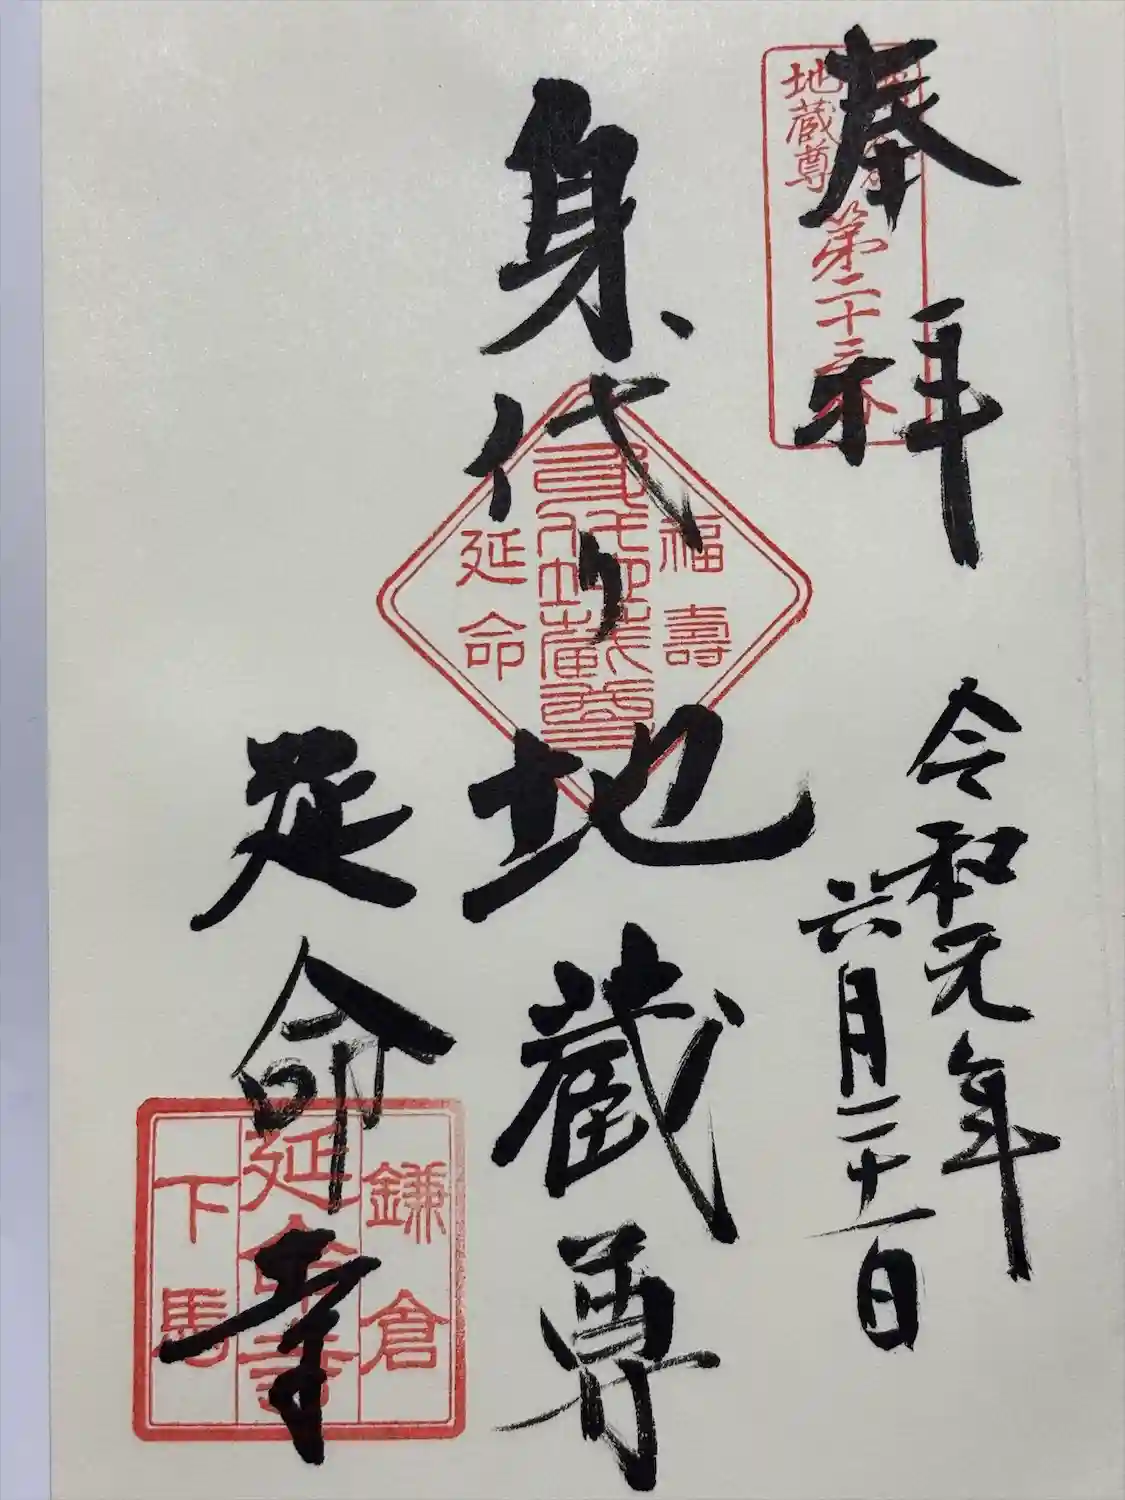 奉拝
地蔵尊
第二十三番
令和元年
六月二十一日
身代り地蔵尊
福壽
身代地蔵尊
延命
延命寺
鎌倉
延命寺
下馬